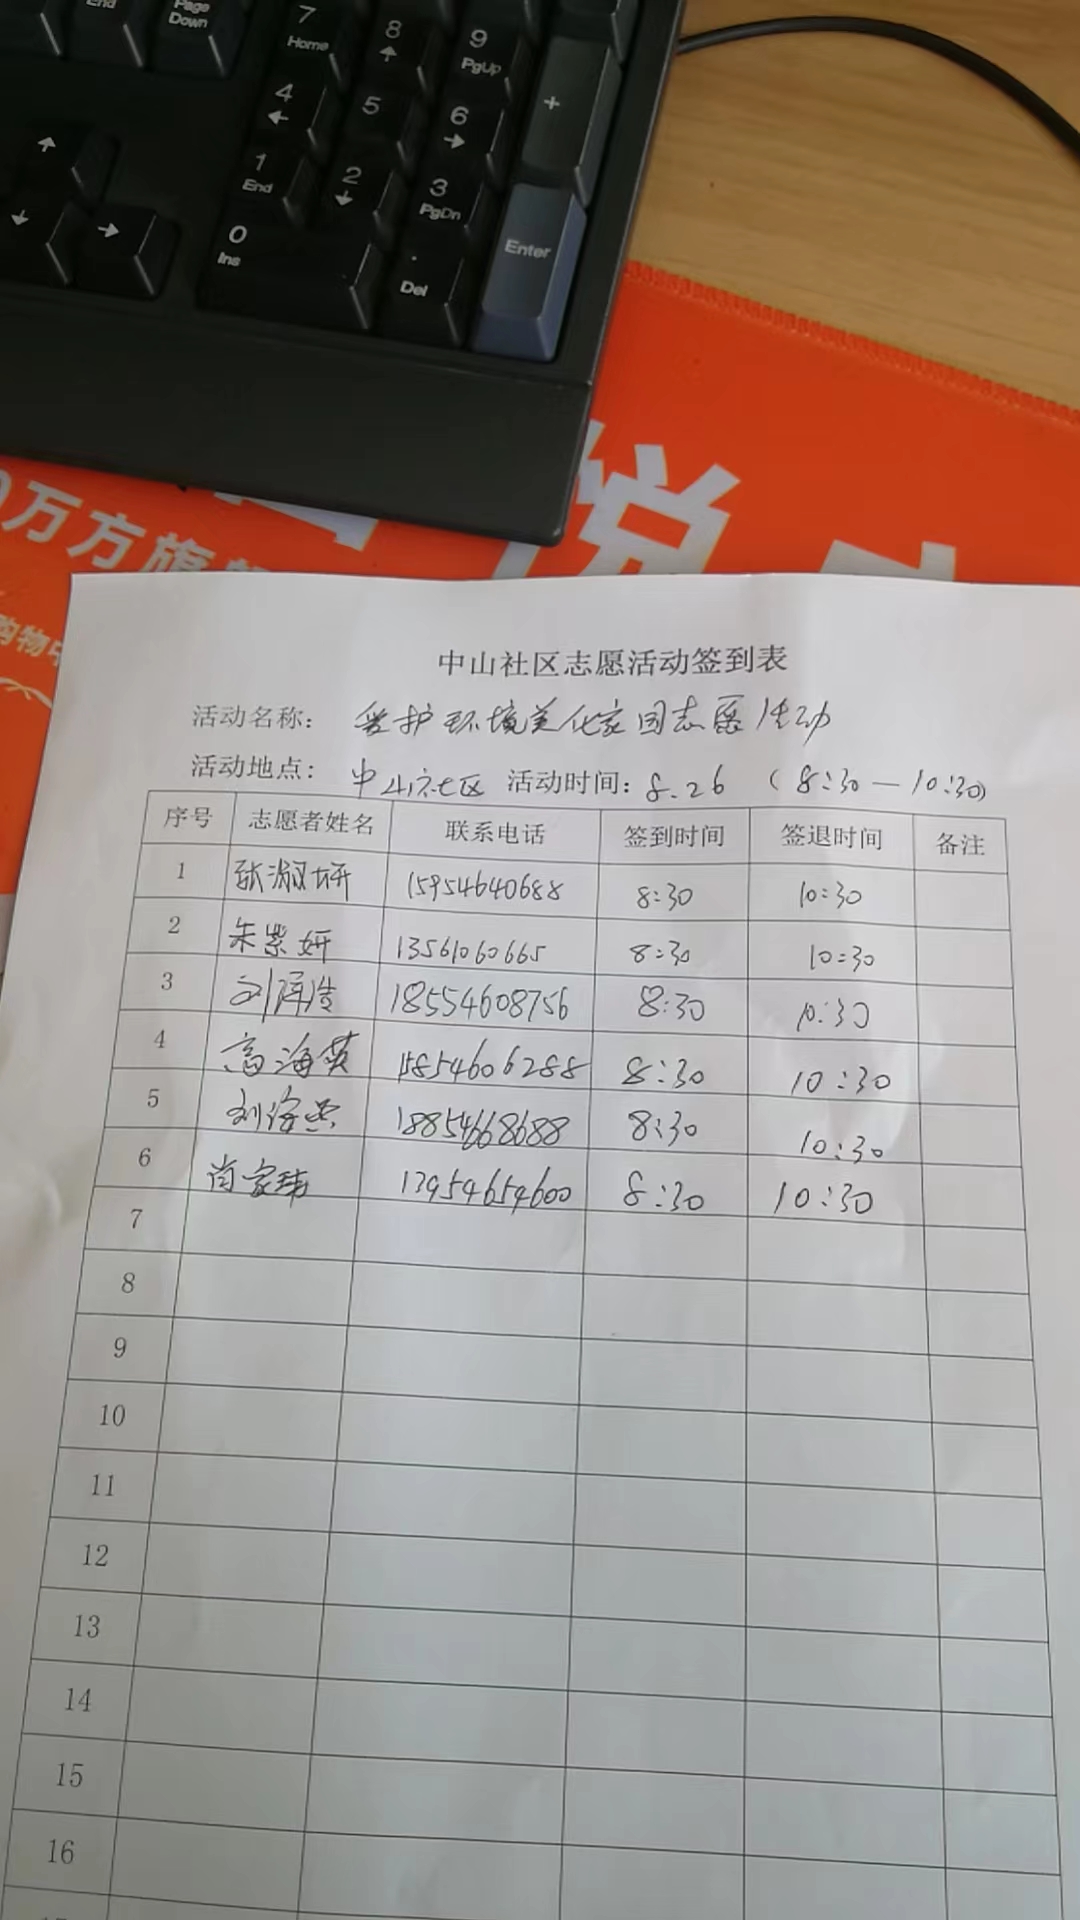 End
Page Down
7 Home
8
9 PgUp
4
5
6
+
1 End
2
3 PgDn
0 Ins
. Del
Enter
悦
0万方旗
购物中
中山社区志愿活动签到表
活动名称: 爱护环境美化家园志愿活动
活动地点: 中山社区 活动时间: 8.26 (8:30—10:30)
序号 志愿者姓名 联系电话 签到时间 签退时间 备注
1 张淑妍 15954640688 8:30 10:30
2 朱紫妍 13561060665 8:30 10:30
3 刘 18554608756 8:30 10:30
4 高海英 15854606288 8:30 10:30
5 刘 18854668688 8:30 10:30
6 尚家玮 13954654600 8:30 10:30
7
8
9
10
11
12
13
14
15
16